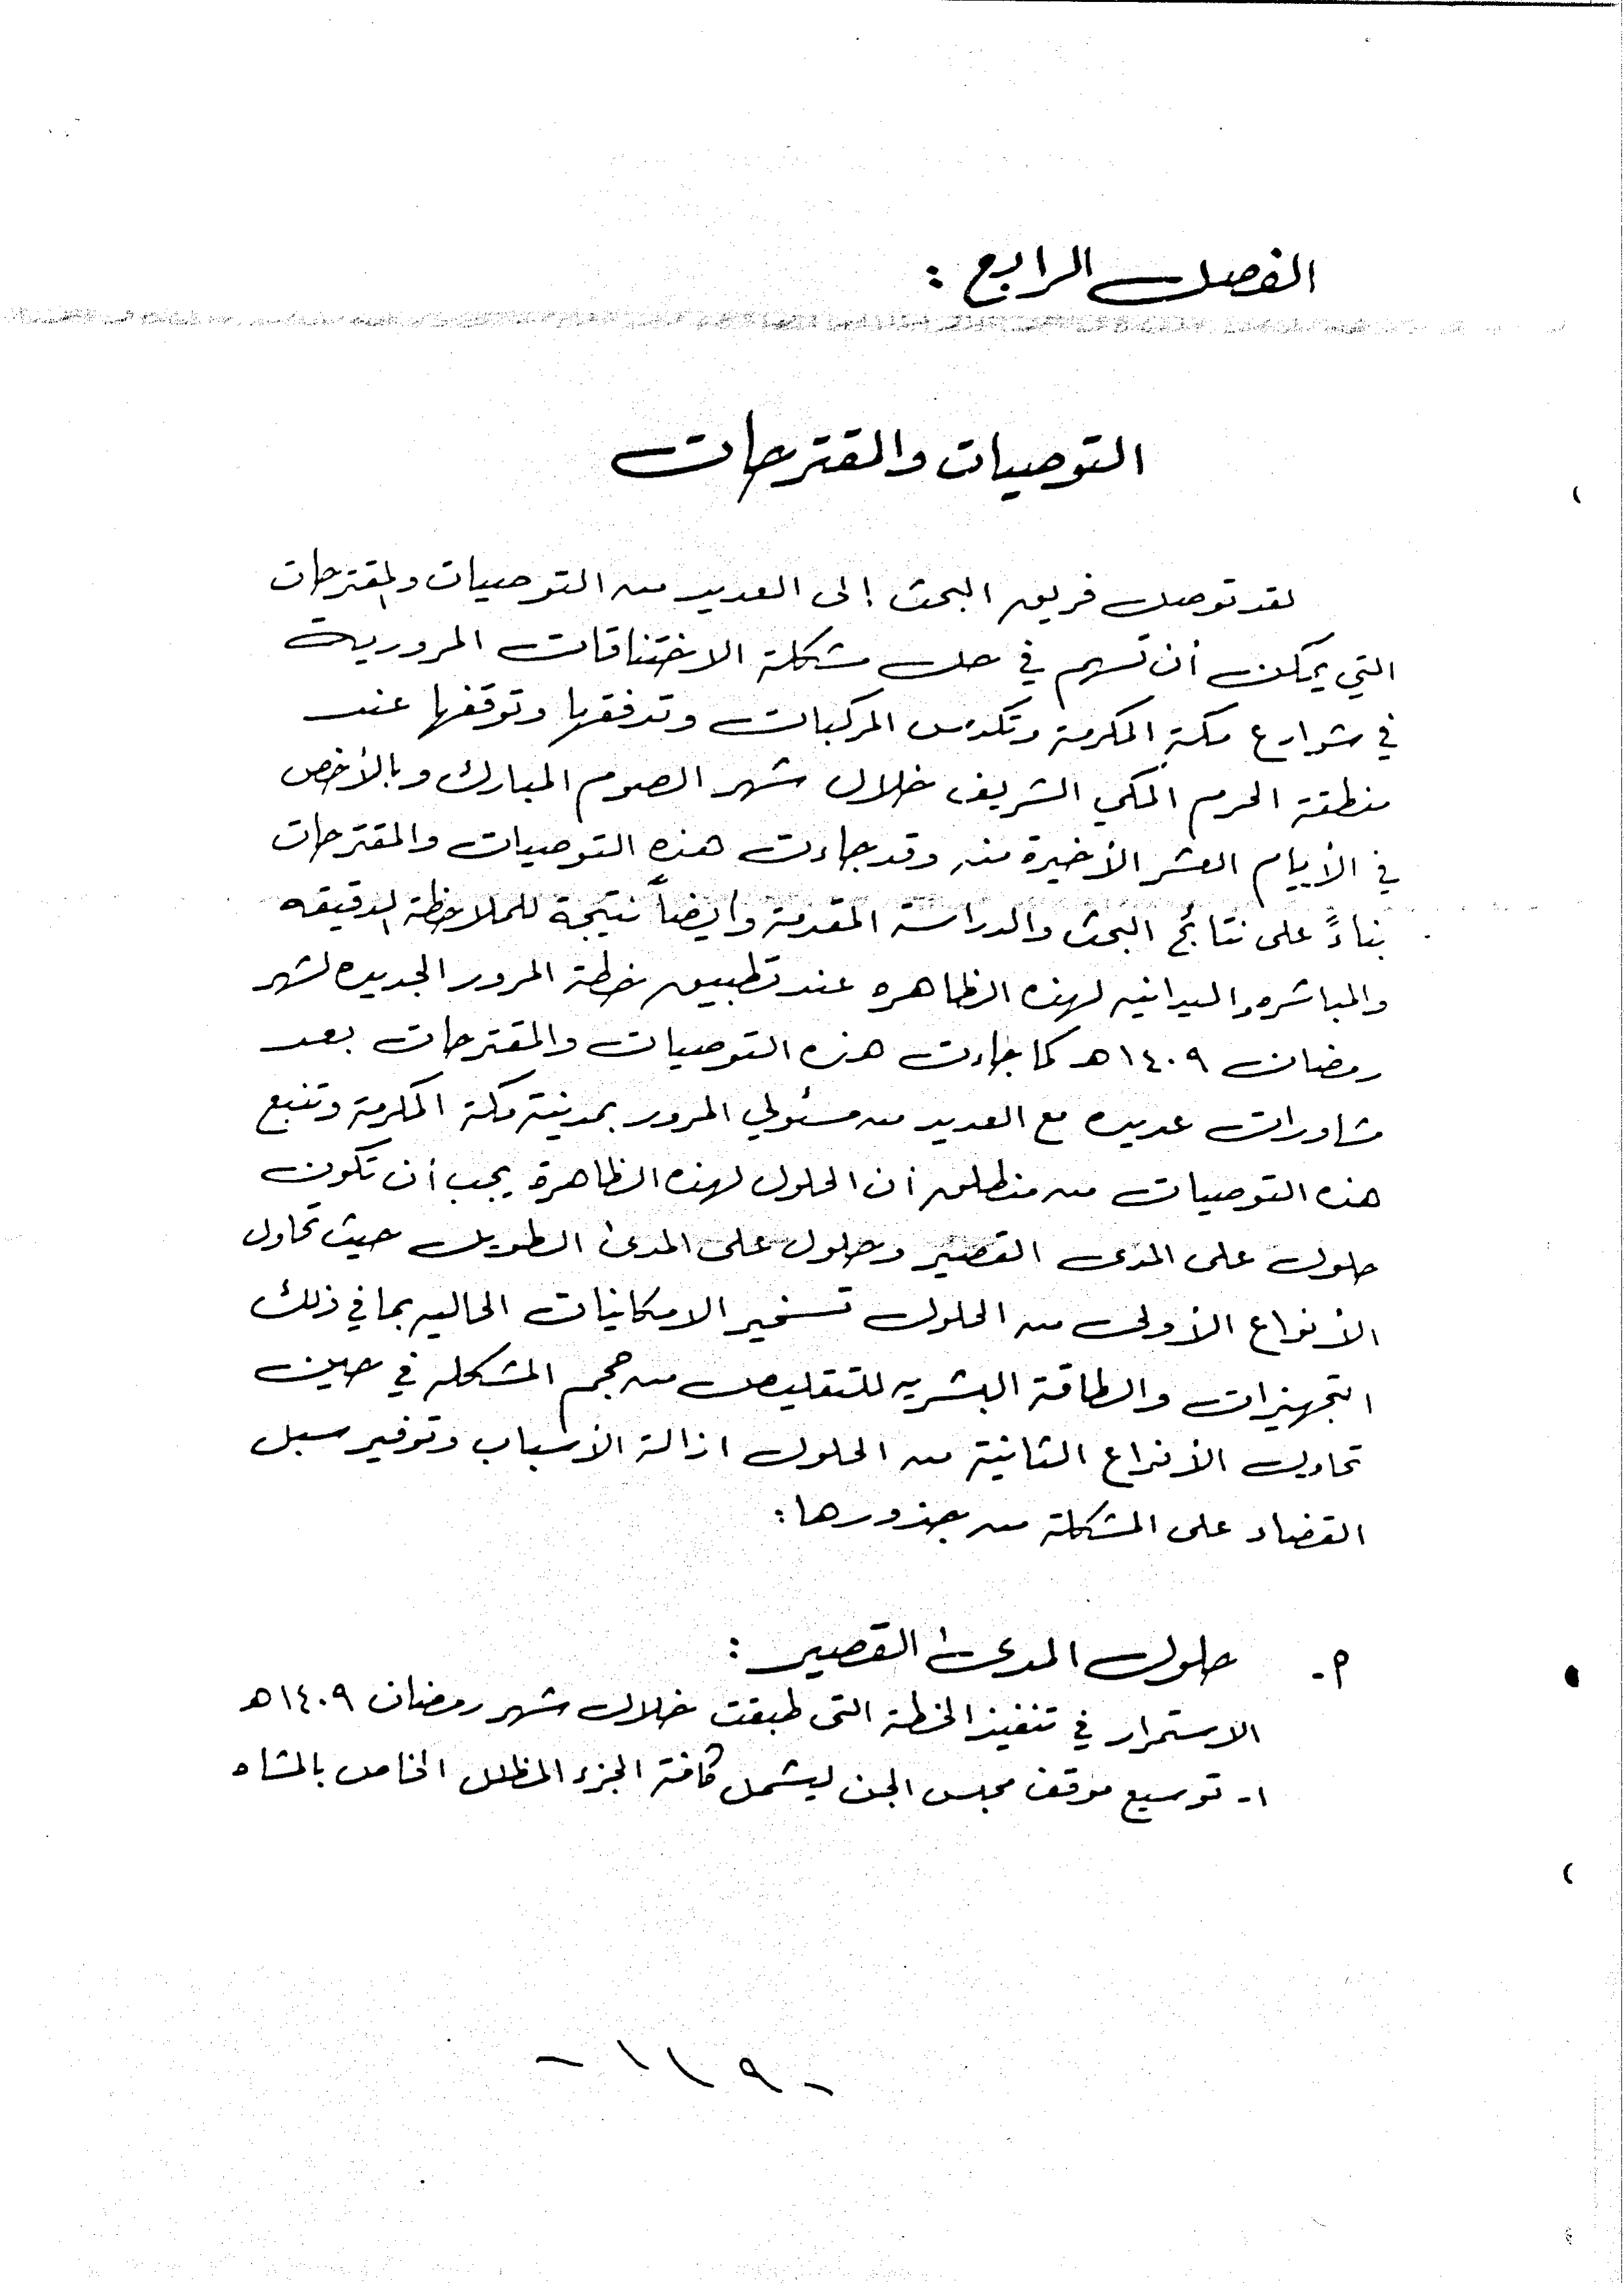 الفصل الرابع :
التوصيات والمقترحات
لقد توصل فريق البحث إلى العديد من التوصيات والمقترحات
التي يمكن أن تسهم في حل مشكلة الاختناقات المرورية
في شوارع مكة المكرمة وتكدس المركبات وتدفقها وتوقفها عند
منطقة الحرم المكي الشريف خلال شهر الصوم المبارك وبالأخص
في الأيام العشر الأخيرة منه وقد جاءت هذه التوصيات والمقترحات
بناءً على نتائج البحث والدراسة المقدمة وايضاً نتيجة للملاحظة الدقيقه
والمباشره والميدانيه لهذه الظاهره عند تطبيق خطة المرور الجديده لشهر
رمضان ١٤٠٩هـ كما جاءت هذه التوصيات والمقترحات بعد
مشاورات عديده مع العديد من مسئولي المرور بمدينة مكة المكرمة وتنبع
هذه التوصيات من منطلق أن الحلول لهذه الظاهرة يجب أن تكون
حلول على المدى القصير وحلول على المدى الطويل حيث تحاول
الأنواع الأولى من الحلول تسخير الامكانيات الحاليه بما في ذلك
التجهيزات والطاقة البشريه للتقليص من حجم المشكله في حين
تحاول الأنواع الثانية من الحلول ازالة الأسباب وتوفير سبل
القضاء على المشكلة من جذورها :
م - حلول المدى القصير :
الاستمرار في تنفيذ الخطة التى طبقت خلال شهر رمضان ١٤٠٩هـ
١- توسيع موقف مجلس الجن ليشمل كافة الجزء المظلل الخاص بالمشاه
- ١١٩ -